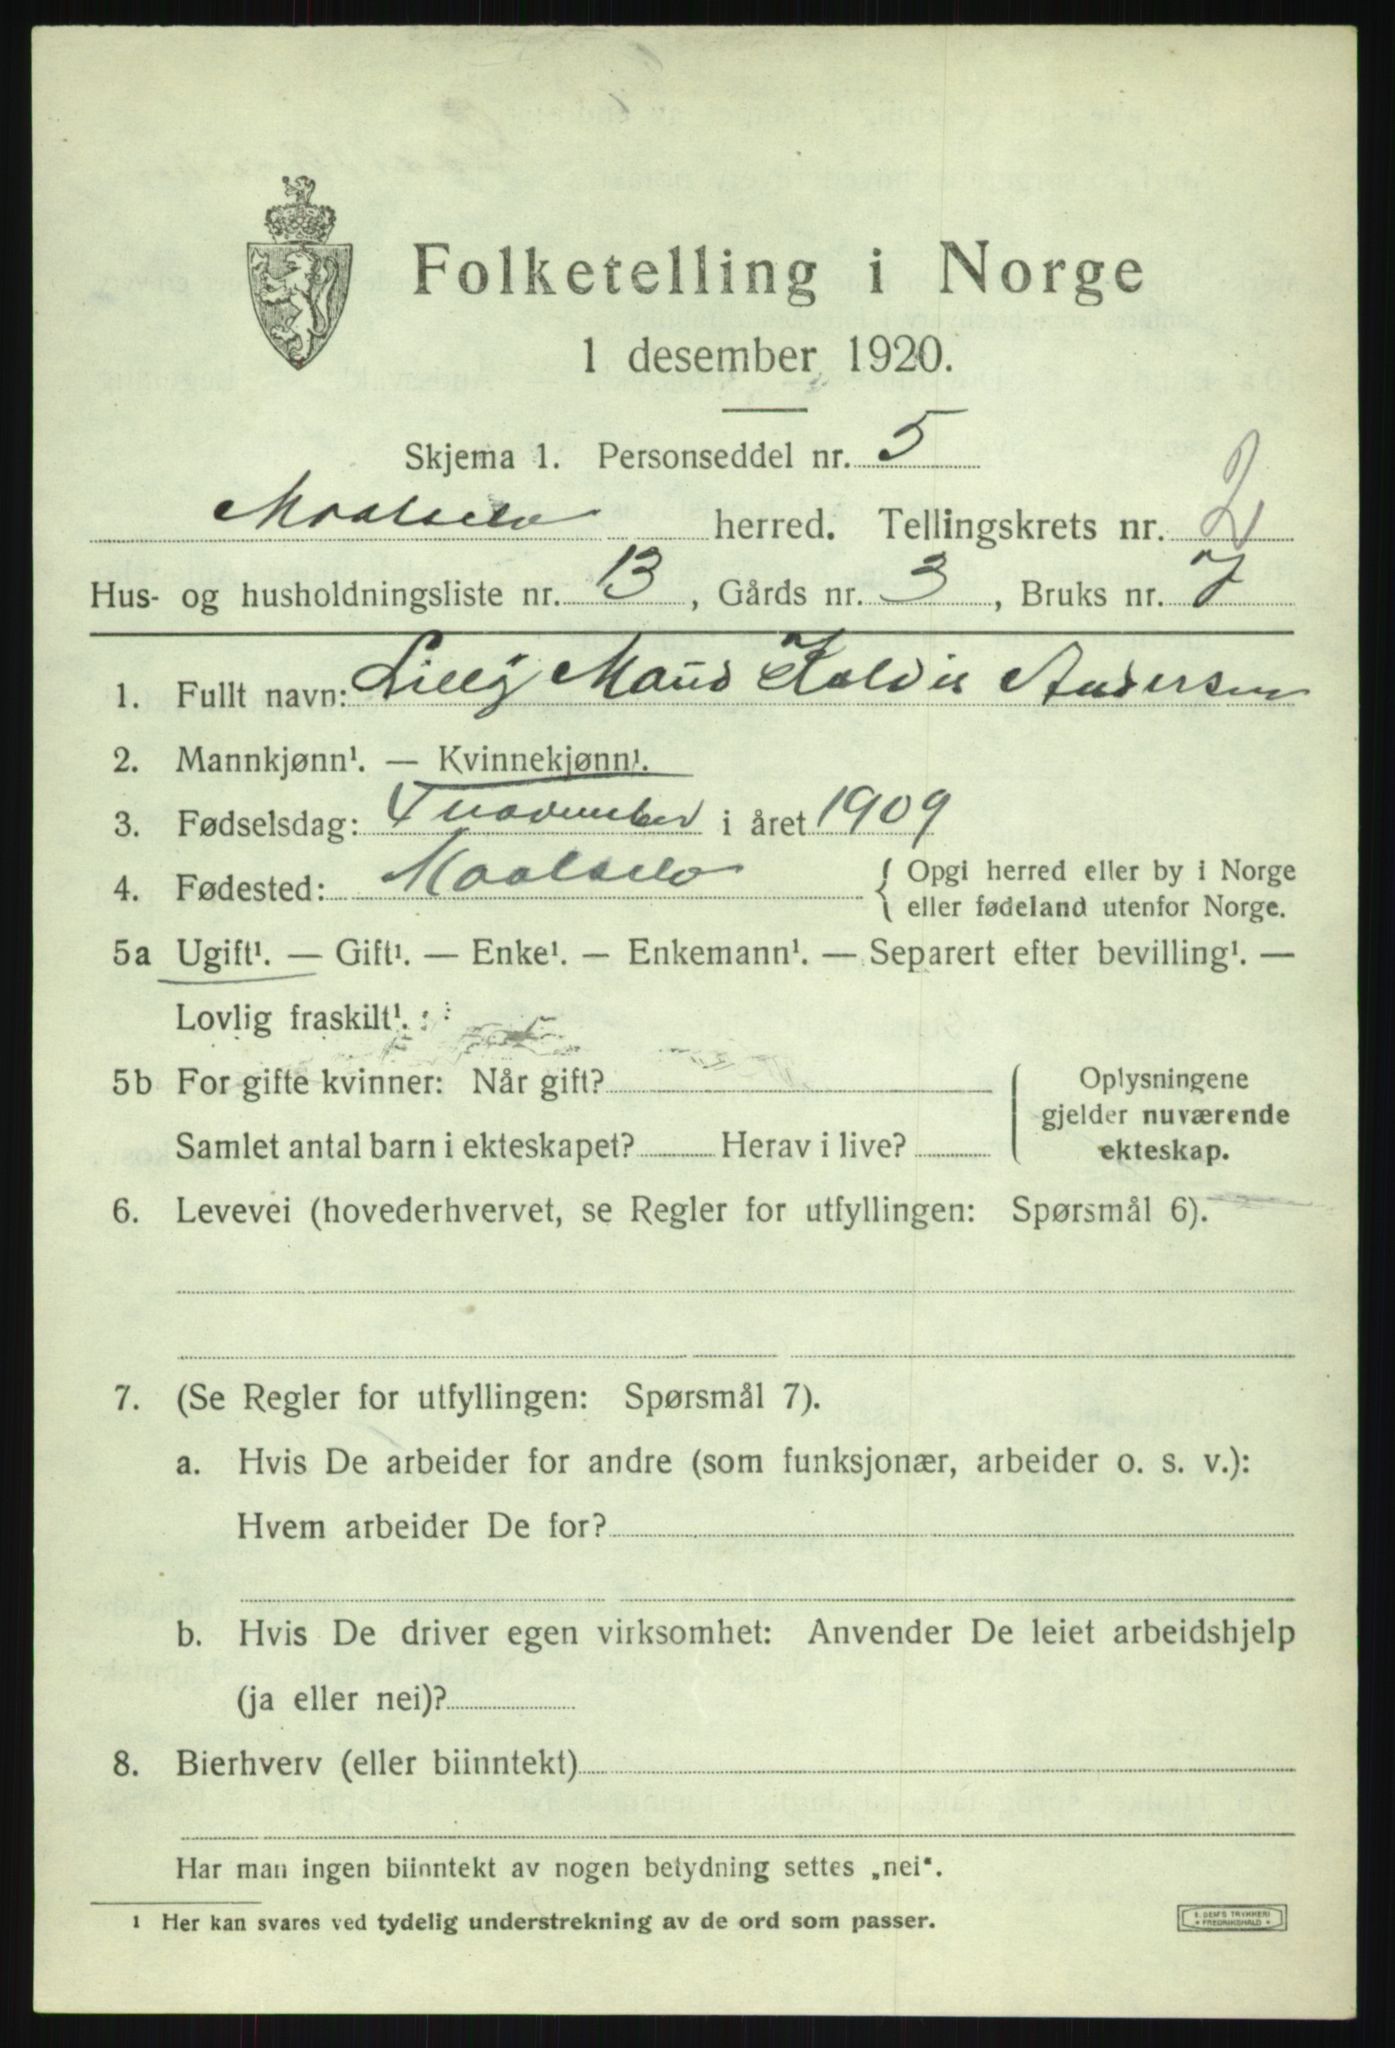 Folketelling i Norge
1 desember 1920.
Skjema 1. Personseddel nr. 5
Maalselv herred. Tellingskrets nr. 2
Hus- og husholdningsliste nr. 13, Gårds nr. 3, Bruks nr. 7
1. Fullt navn: Lilly Maud Andersen
2. Mannkjønn¹. — Kvinnekjønn¹.
3. Fødselsdag: 4 november i året 1909
4. Fødested: Maalselv { Opgi herred eller by i Norge
eller fødeland utenfor Norge.
5a Ugift¹. — Gift¹. — Enke¹. — Enkemann¹. — Separert efter bevilling¹. —
Lovlig fraskilt¹.
5b For gifte kvinner: Når gift?
Samlet antal barn i ekteskapet? Herav i live?
Oplysningene
gjelder nuværende
ekteskap.
6. Levevei (hovederhvervet, se Regler for utfyllingen: Spørsmål 6).
7. (Se Regler for utfyllingen: Spørsmål 7).
a. Hvis De arbeider for andre (som funksjonær, arbeider o. s. v.):
Hvem arbeider De for?
b. Hvis De driver egen virksomhet: Anvender De leiet arbeidshjelp
(ja eller nei)?
8. Bierhverv (eller biinntekt)
Har man ingen biinntekt av nogen betydning settes „nei“.
¹ Her kan svares ved tydelig understrekning av de ord som passer.
E. SEM'S TRYKKERI
FREDRIKSHALD